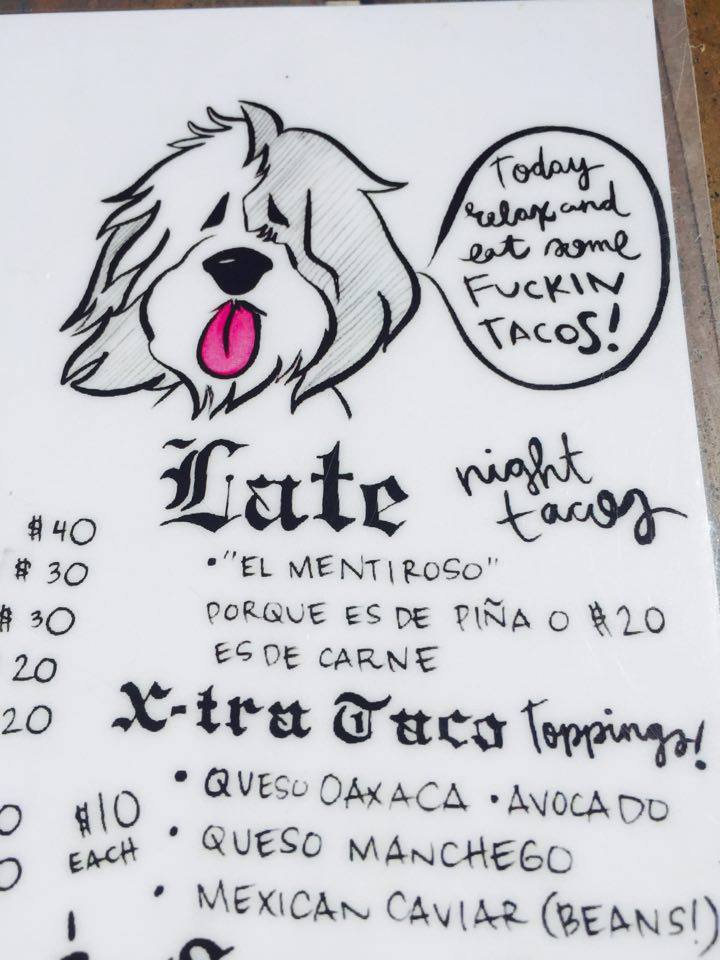 Today
relax and
eat some
FUCKIN
TACOS!
Late night
tacos
$40
$30
$30
20
20
• "EL MENTIROSO"
PORQUE ES DE PIÑA O $20
ES DE CARNE
X-tra Taco Toppings!
$10
EACH
• QUESO OAXACA • AVOCADO
• QUESO MANCHEGO
• MEXICAN CAVIAR (BEANS!)